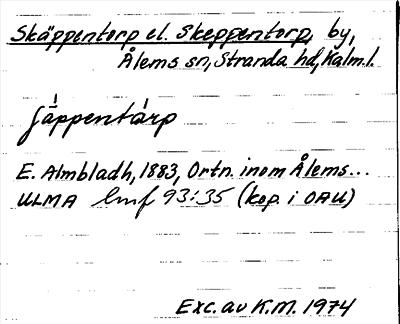 Skäppentorp el. Skeppentorp, by,
Ålems sn, Stranda hd, Kalm. l.
jäppentårp
E. Almbladh, 1883, Ortn. inom Ålems...
ULMA 93:35 (kop. i OAU)
Exc. av K.M. 1974